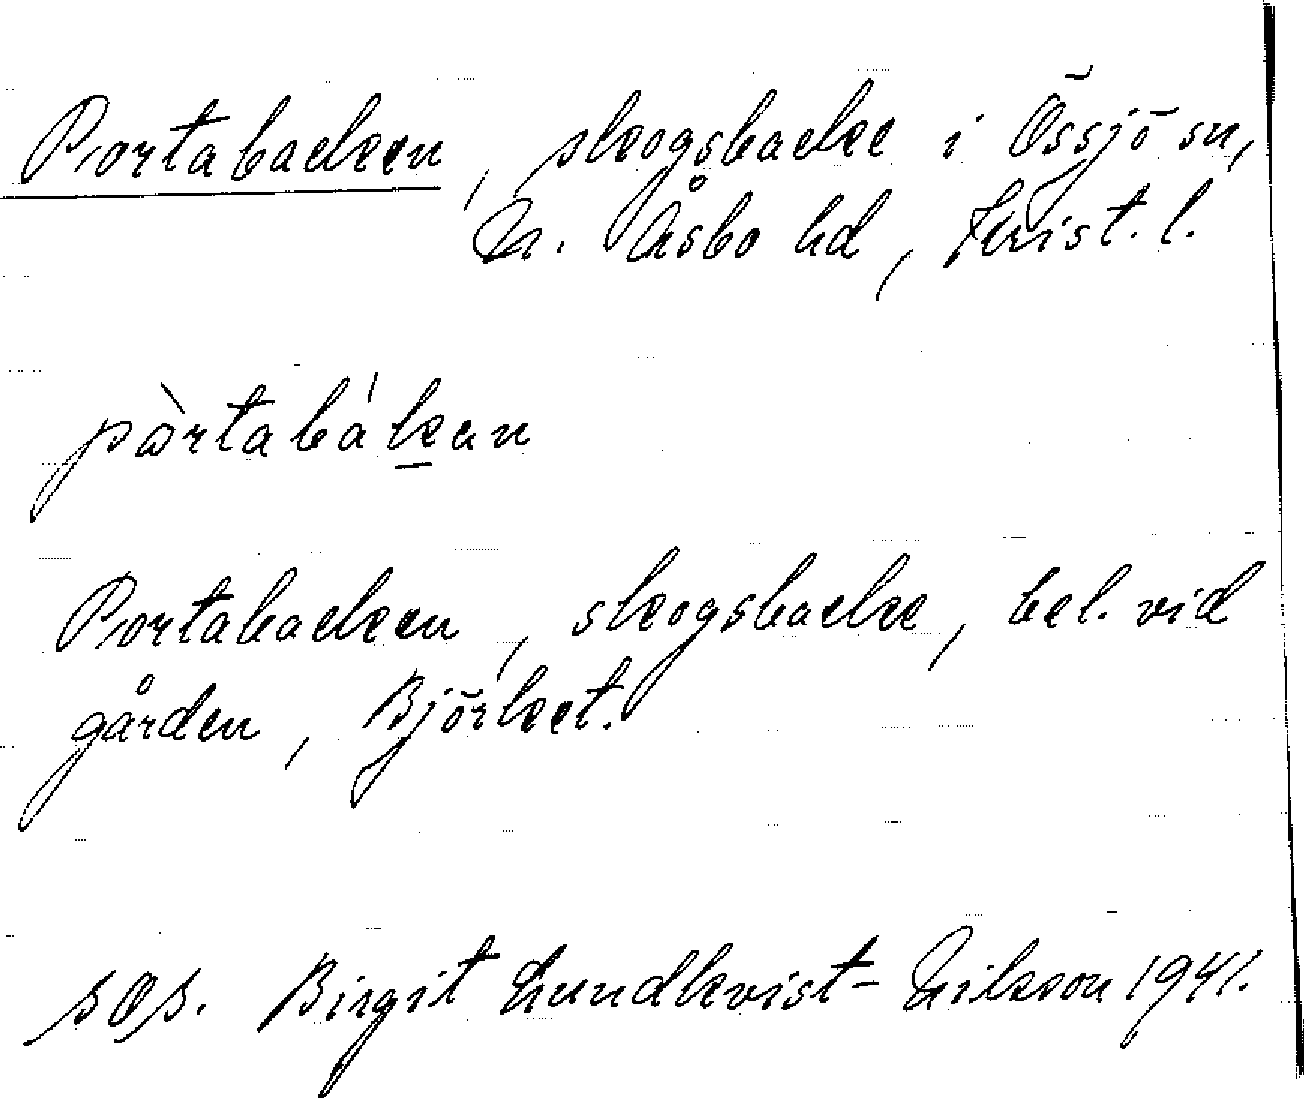 Portabacken, skogsbacke i Össjö sn,
N. Åsbo hd, Krist. l.
pòrtabákan
Portabacken, skogsbacke, bel. vid
gården, Björket.
Birgit Lundkvist-Nilsson 1941.